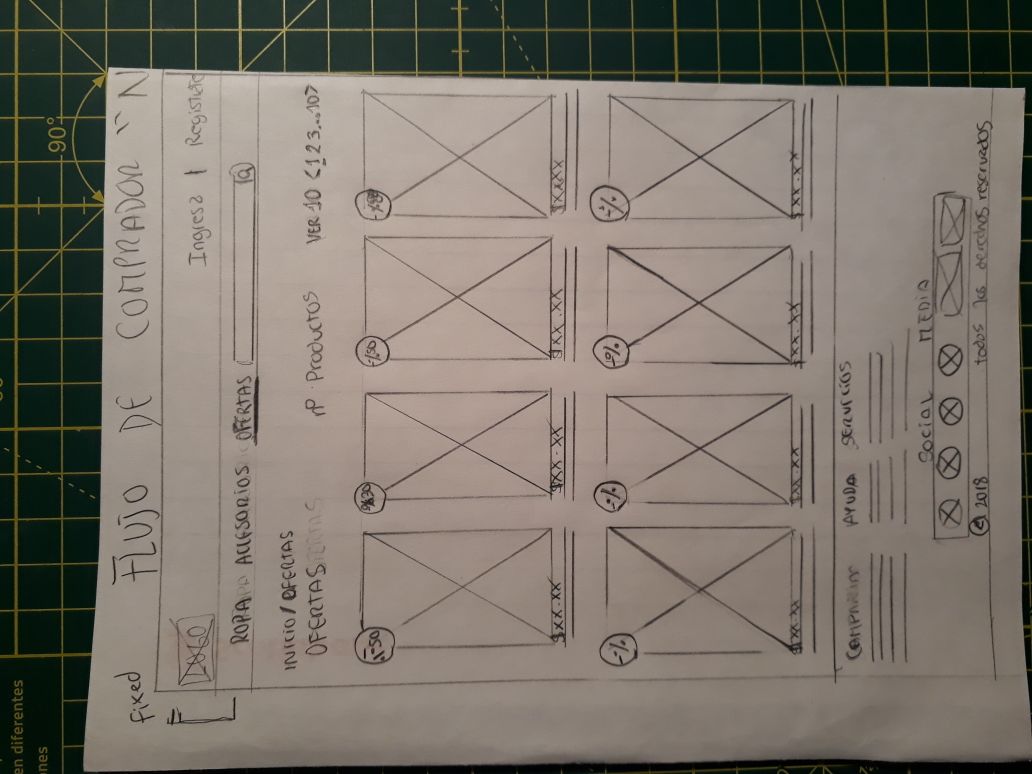 FLUJO DE COMPRADOR
Fixed
LOGO
Ingresa | Registrate
ROPA ACCESORIOS OFERTAS
INICIO / OFERTAS
OFERTAS
nº Productos
VER 10 <1 2 3...10>
$XX.XX $XX.XX $XX.XX $XXXX
-% -% -% -%
$XX.XX $XX.XX $XX.XX $XX.X
AYUDA SERVICIOS
SOCIAL MEDIA
© 2018 todos los derechos reservados
90°
en diferentes